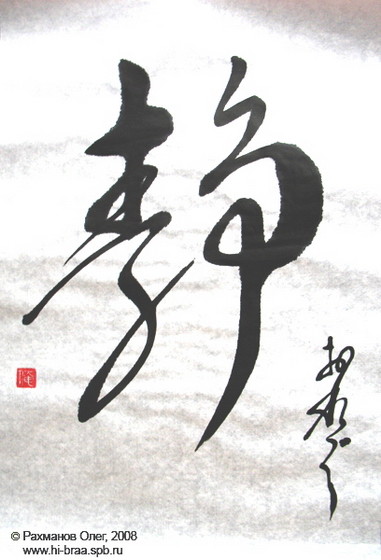 靜
© Рахманов Олег, 2008
www.hi-braa.spb.ru